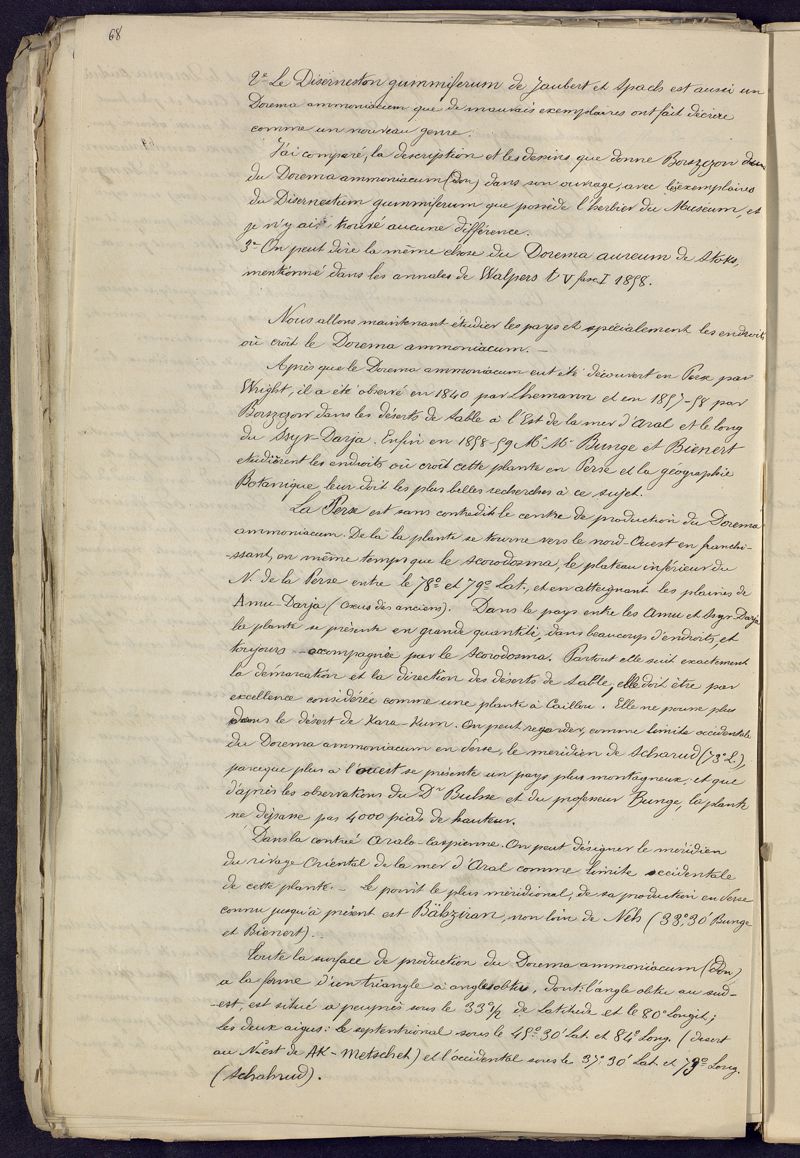 68
2º Le Diserneston gummiferum de Jaubert et Spach est aussi un
Dorema ammoniacum que de mauvais exemplaires ont fait décrire
comme un nouveau genre.
J'ai comparé, la description et les dessins, que donne Borszczow
du Dorema ammoniacum (Don) dans son ouvrage, avec les exemplaires
du Disernestum gummiferum que possède l'herbier du Museum, et
je n'y ai trouvé aucune différence.
3º On peut dire la même chose du Dorema aureum de Stoks,
mentionné dans les annales de Walpers t V fasc I 1858.
Nous allons maintenant étudier les pays et spécialement les endroits
où croît le Dorema ammoniacum. —
Après que le Dorema ammoniacum eut été découvert en Perse par
Wright, il a été observé en 1840 par Lhemann et en 1857-58 par
Borszczow dans les déserts de sable à l'Est de la mer d'Aral et le long
du Ssyr-Darja. Enfin en 1858-59 Mr Mr Bunge et Bienert
etudièrent les endroits où croît cette plante en Perse et la géographie
Botanique leur doit les plus belles recherches à ce sujet.
La Perse est sans contredit le centre de production du Dorema
ammoniacum. De là la plante se tourne vers le nord-Ouest en franchi-
-ssant, en même temps que le Scorodosma, le plateau inférieur du
N. de la Perse entre le 78º et 79º Lat., et en atteignant les plaines de
Amu-Darja (Oxus des anciens). Dans le pays entre les Amu et Ssyr-Darja
la plante se présente en grande quantité, dans beaucoup d'endroits, et
toujours accompagnée par le Scorodosma. Partout elle suit exactement
la démarcation et la direction des déserts de sable, elle doit être par
excellence considérée comme une plante à Caillou. Elle ne pousse plus
dans le désert de Kara-Kum. On peut regarder, comme limite occidentale
du Dorema ammoniacum en Perse, le meridien de Scharud (73º L.),
parceque plus à l'ouest se présente un pays plus montagneux, et que
d'après les observations du Dr Buhse et du professeur Bunge, la plante
ne dépasse pas 4000 pieds de hauteur.
Dans la contrée Aralo-Caspienne. On peut désigner le meridien
du rivage Oriental de la mer d'Aral comme limite occidentale
de cette plante. — Le point le plus méridional, de sa production en Perse
connu jusqu'à présent est Bäbziran, non loin de Neh (33º,30' Bunge
et Bienert).
Toute la surface de production du Dorema ammoniacum (Don)
a la forme d'un triangle à angle obtus, dont: l'angle obtu au sud-
-est, est situé a peuprès sous le 33º½ de Latitude et le 80º Longit;
les deux aigus: le septentrional sous le 45º30' Lat. et 84º Long. (desert
au N-est de AK-Metschet) et l'occidental sous le 37º 30' Lat. et 73º Long.
(Schahrud).